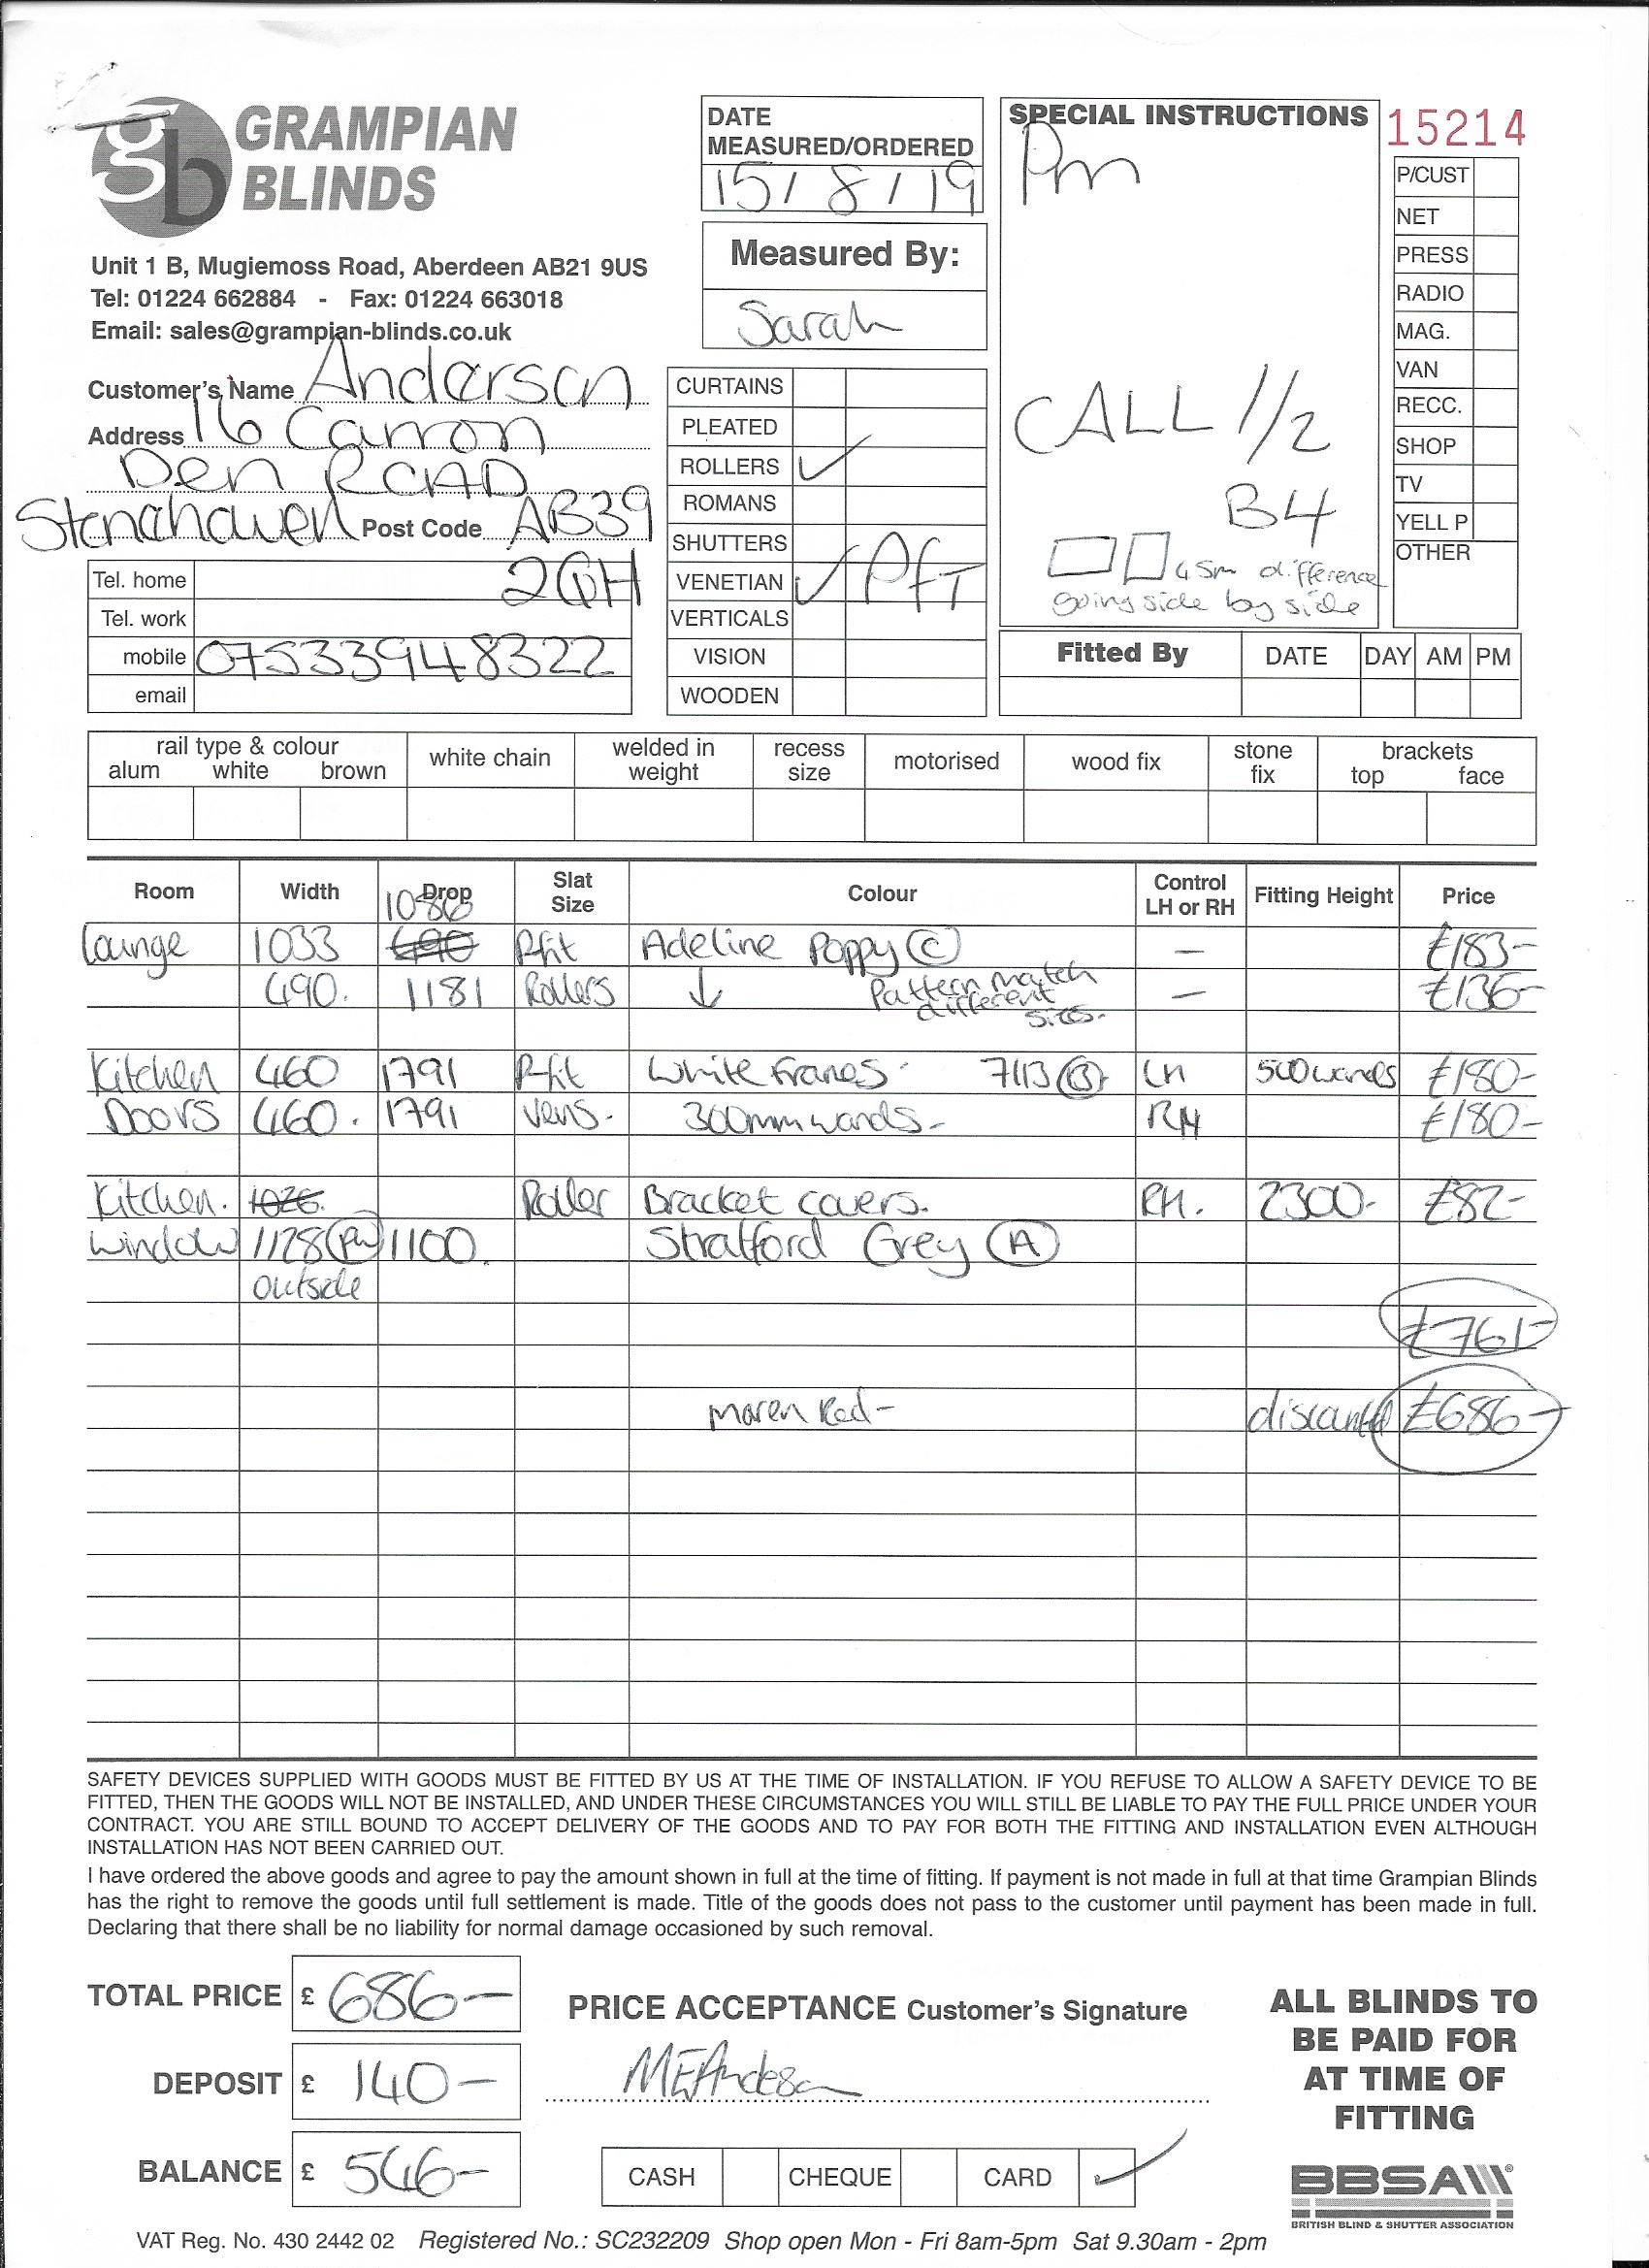 gb GRAMPIAN BLINDS
Unit 1 B, Mugiemoss Road, Aberdeen AB21 9US
Tel: 01224 662884 - Fax: 01224 663018
Email: sales@grampian-blinds.co.uk
Customer's Name Anderson
Address 16 Carron
Den ROAD
Stonehaven Post Code AB39
2QH
Tel. home
Tel. work
mobile 07533948322
email
DATE MEASURED/ORDERED
15/8/19
Measured By:
Sarah
CURTAINS
PLEATED
ROLLERS ✓
ROMANS
SHUTTERS
VENETIAN ✓ PfT
VERTICALS
VISION
WOODEN
SPECIAL INSTRUCTIONS
Pm
CALL 1/2
B4
45m difference
going side by side
15214
P/CUST
NET
PRESS
RADIO
MAG.
VAN
RECC.
SHOP
TV
YELL P
OTHER
Fitted By DATE DAY AM PM
rail type & colour white chain welded in weight recess size motorised wood fix stone fix brackets
alum white brown top face
Room Width Drop Slat Size Colour Control LH or RH Fitting Height Price
1086
Lounge 1033 690 Pfit Adeline Poppy (C) — £183-
490. 1181 Rollers ↓ Pattern match different sizes. — £136-
Kitchen 460 1791 Pfit White Frames 7113 (B) LH 500wands £180-
Doors 460. 1791 Vens. 300mm wands- RH £180-
Kitchen. 1026. Roller Bracket covers. RH. 2300- £82-
Window 1128 (Pw) 1100 Stratford Grey (A)
outside
£761-
discounted £686-
SAFETY DEVICES SUPPLIED WITH GOODS MUST BE FITTED BY US AT THE TIME OF INSTALLATION. IF YOU REFUSE TO ALLOW A SAFETY DEVICE TO BE
FITTED, THEN THE GOODS WILL NOT BE INSTALLED, AND UNDER THESE CIRCUMSTANCES YOU WILL STILL BE LIABLE TO PAY THE FULL PRICE UNDER YOUR
CONTRACT. YOU ARE STILL BOUND TO ACCEPT DELIVERY OF THE GOODS AND TO PAY FOR BOTH THE FITTING AND INSTALLATION EVEN ALTHOUGH
INSTALLATION HAS NOT BEEN CARRIED OUT.
I have ordered the above goods and agree to pay the amount shown in full at the time of fitting. If payment is not made in full at that time Grampian Blinds
has the right to remove the goods until full settlement is made. Title of the goods does not pass to the customer until payment has been made in full.
Declaring that there shall be no liability for normal damage occasioned by such removal.
TOTAL PRICE £ 686-
DEPOSIT £ 140-
BALANCE £ 546-
PRICE ACCEPTANCE Customer's Signature
MEAnderson
CASH CHEQUE CARD ✓
ALL BLINDS TO
BE PAID FOR
AT TIME OF
FITTING
BBSA
BRITISH BLIND & SHUTTER ASSOCIATION
VAT Reg. No. 430 2442 02 Registered No.: SC232209 Shop open Mon - Fri 8am-5pm Sat 9.30am - 2pm